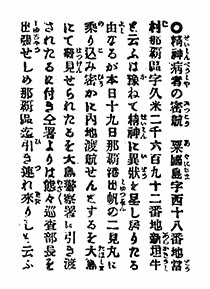 ◯精神病者の密航 粟國島字西十八番地當
村那覇區字久米二千六百九十二番地新垣牛
と云ふは豫ねて精神に異狀を呈し居りたる
由なるが本日十九日那覇港出帆の二見丸に
乗り込み密かに内地渡航せんとするを大島
にて發見せられたるを大島警察署に引き渡
されたるに付き仝署よりは態々巡査部長を
出張せしめ那覇區迄引き連れ來りしと云ふ